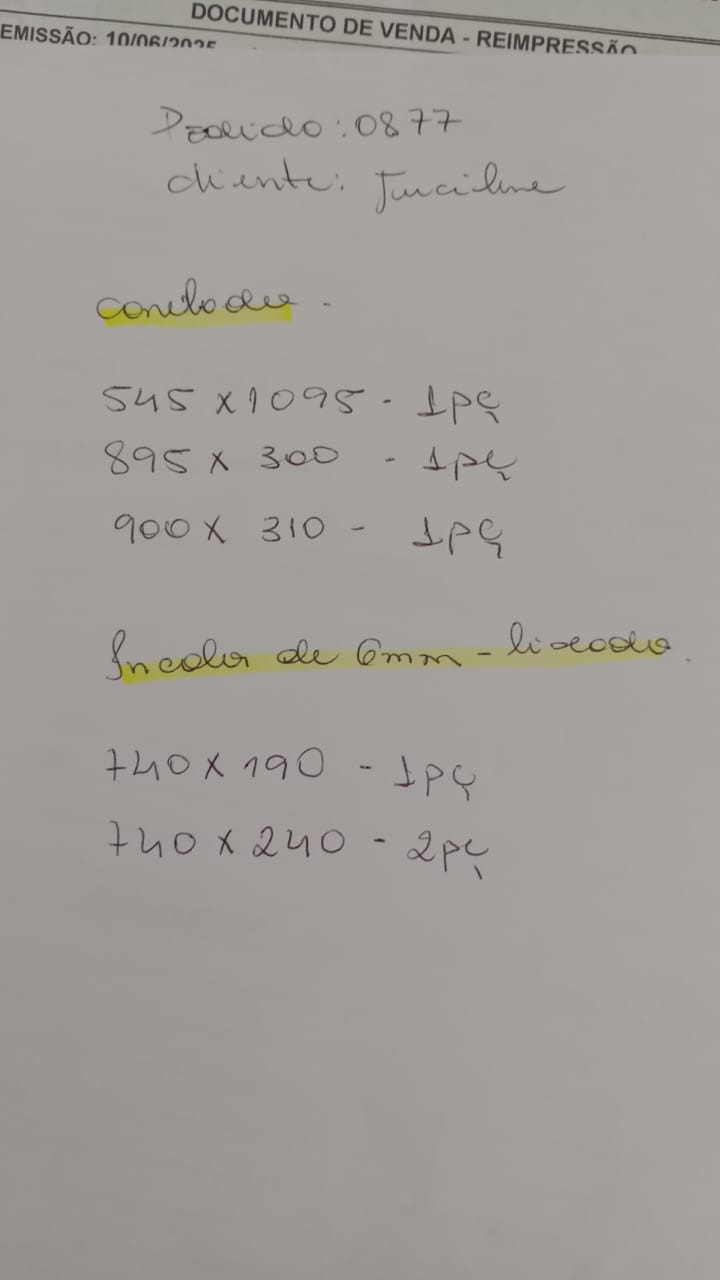 DOCUMENTO DE VENDA - REIMPRESSÃO
EMISSÃO: 10/06/2025
Pedido: 0877
cliente: Juciline
545 x 1095 - 1pç
895 x 300 - 1pç
900 x 310 - 1pç
Incolor de 6mm - lixado.
740 x 190 - 1pç
740 x 240 - 2pç